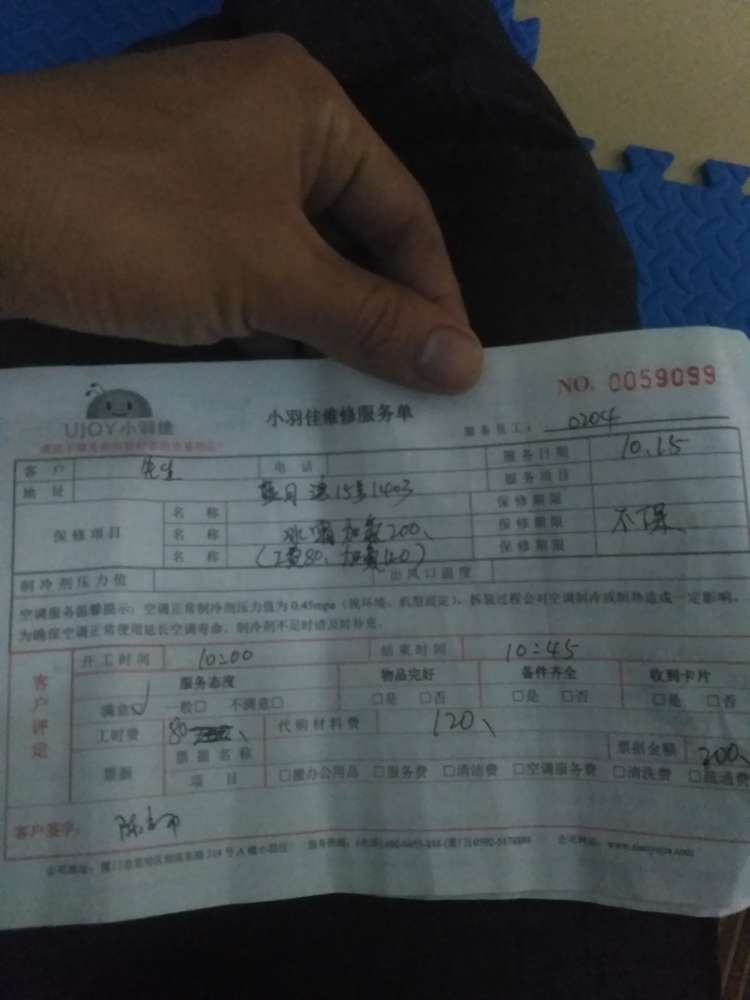 NO. 0059099
UJOY小羽佳
小羽佳维修服务单
服务员工： 0204
客户 先生 电话 服务日期 10.15
地址 15 1403 服务项目
保修项目
名称 保修期限
名称 加氟200、 保修期限 不保
名称 (工费80、加氟120) 保修期限
制冷剂压力值 出风口温度
空调服务温馨提示：空调正常制冷剂压力值为0.45mpa（视环境、机型而定），拆装过程会对空调制冷或制热造成一定影响，
为确保空调正常使用延长空调寿命，制冷剂不足时请及时补充。
客户评定
开工时间 10:00 结束时间 10:45
服务态度 物品完好 备件齐全 收到卡片
满意 一般□ 不满意□ □是 □否 □是 □否 □是 □否
工时费 80 代购材料费 120、
票据 票据名称 票据金额 200、
项目 □搬办公用品 □服务费 □清洁费 □空调服务费 □清洗费 □疏通费
客户签字：
公司地址： 服务热线： 公司网站：